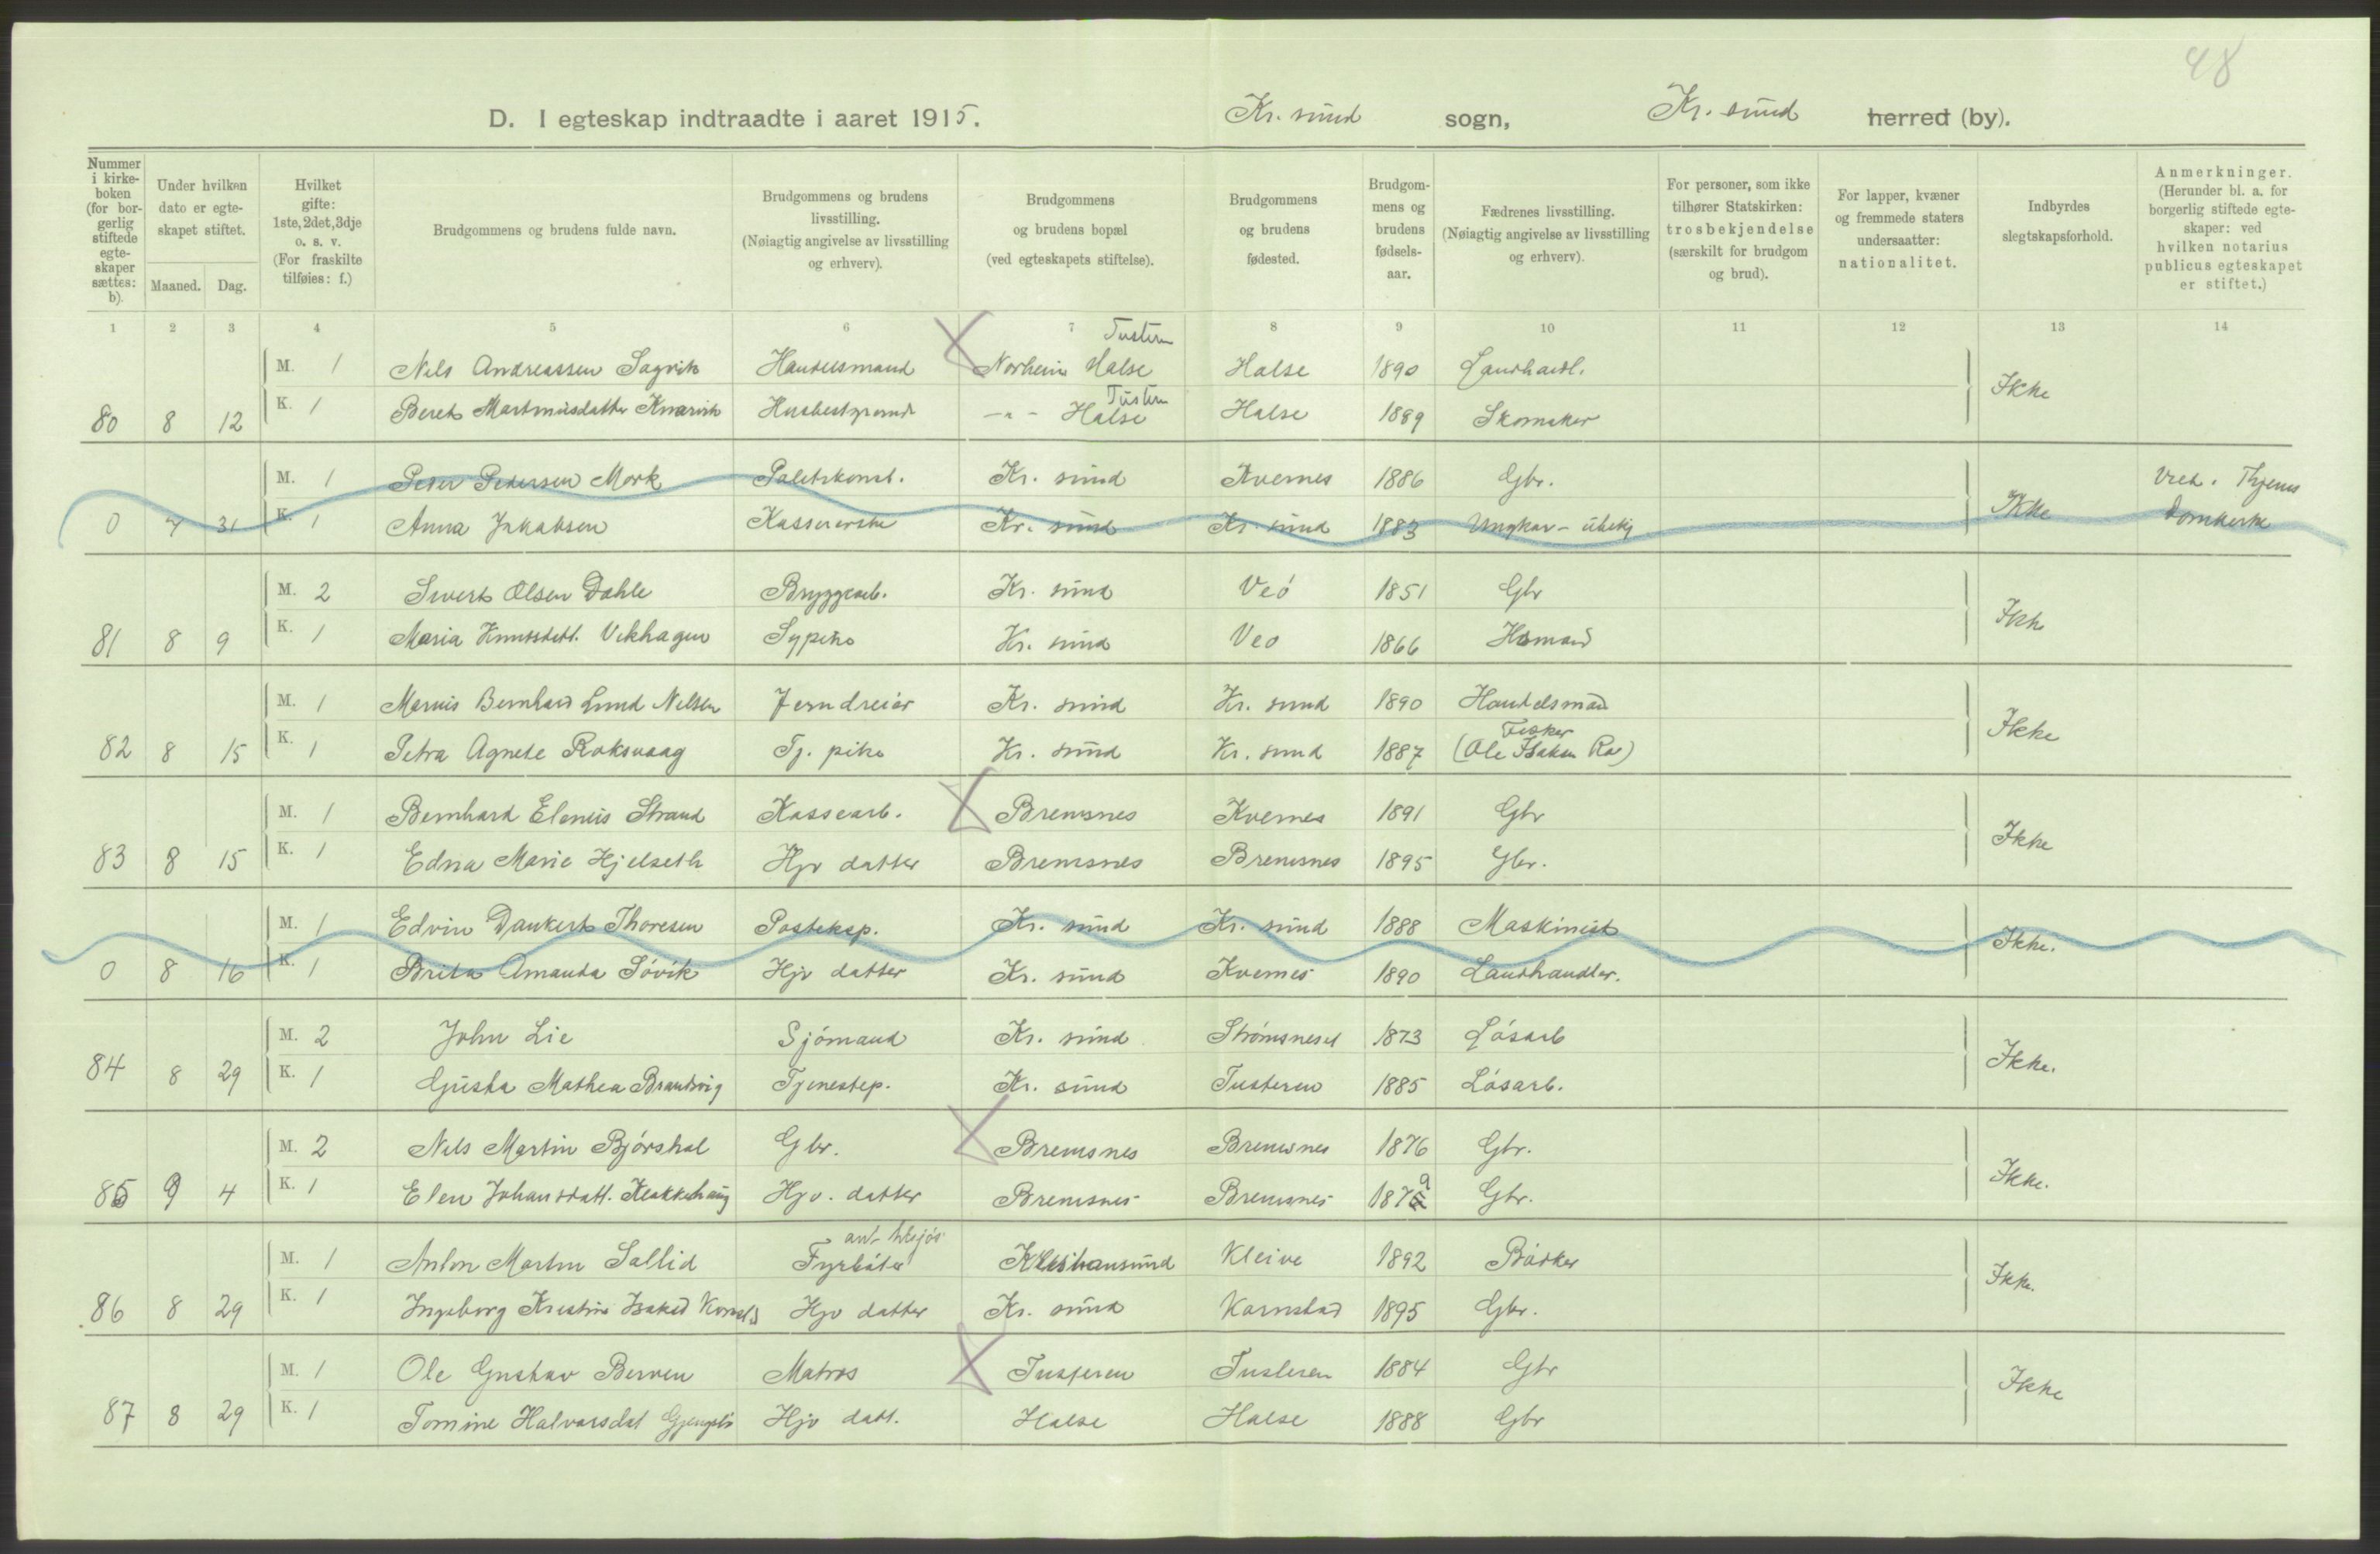 48
D. I egteskap indtraadte i aaret 1915. Kr. sund sogn, Kr. sund herred (by).
Nummer i kirkeboken (for borgerlig stiftede egteskaper sættes: b). Under hvilken dato er egteskapet stiftet. Maaned. Dag. Hvilket gifte: 1ste, 2det, 3dje o. s. v. (For fraskilte tilføies: f.) Brudgommens og brudens fulde navn. Brudgommens og brudens livsstilling. (Nøiagtig angivelse av livsstilling og erhverv). Brudgommens og brudens bopæl (ved egteskapets stiftelse). Brudgommens og brudens fødested. Brudgommens og brudens fødselsaar. Fædrenes livsstilling. (Nøiagtig angivelse av livsstilling og erhverv). For personer, som ikke tilhører Statskirken: trosbekjendelse (særskilt for brudgom og brud). For lapper, kvæner og fremmede staters undersaatter: nationalitet. Indbyrdes slegtskapsforhold. Anmerkninger. (Herunder bl. a. for borgerlig stiftede egteskaper: ved hvilken notarius publicus egteskapet er stiftet.)
1 2 3 4 5 6 7 8 9 10 11 12 13 14
Tustern
M. 1 Nils Andreassen Sagvik Handelsmand Norheim Halse Halse 1890 Landhandl.
Ikke
Tustern
80 8 12 K. 1 Beret Martinusdatter Knarvik Husbestyrerinde -"- Halse Halse 1889 Skomaker
M. 1 Peder Pedersen Mork Politikonst. Kr. sund Kvernes 1886 Gbr. Vie
0 7 31 K. 1 Anna Jakobsen Kassererske Kr. sund Kr. sund 1883 Ungkar Ikke Domkirke
M. 2 Sivert Olsen Dahle Bryggearb. Kr. sund Veø 1851 Gbr
Ikke
81 8 9 K. 1 Maria Knutsdatt. Vikhagen Sypike Kr. sund Veø 1866 Hsmand
M. 1 Marius Bernhard Lund Nelsen Jerndreier Kr. sund Kr. sund 1890 Handelsmand
Ikke
Fisker
82 8 15 K. 1 Petra Agnete Roksvaag Tj. pike Kr. sund Kr. sund 1887 (Ole Isaksen Ro)
M. 1 Bernhard Elenius Strand Kassearb. Bremsnes Kvernes 1891 Gbr
Ikke
83 8 15 K. 1 Edna Marie Hjelseth Hjv datter Bremsnes Bremsnes 1895 Gbr.
M. 1 Edvin Dankert Thoresen Posteksp. Kr. sund Kr. sund 1888 Maskinist
Ikke.
0 8 16 K. 1 Brita Amanda Søvik Hjv datter Kr. sund Kvernes 1890 Landhandler.
M. 2 John Lie Sjømand Kr. sund Strømsneset 1873 Løsarb
Ikke.
84 8 29 K. 1 Gusta Mathea Brandvig Tjenestep. Kr. sund Tusteren 1885 Løsarb.
M. 2 Nils Martin Bjørshol Gbr. Bremsnes Bremsnes 1876 Gbr.
Ikke.
85 9 4 K. 1 Elen Johansdatt. Klakkehaug Hjv. datter Bremsnes Bremsnes 1879 Gbr.
M. 1 Anton Martin Sollid Fyrbøter Kristiansund Kleive 1892 Bødker
Ikke.
86 8 29 K. 1 Ingeborg Kristine Isaksd Hjv datter Kr. sund Kornstad 1895 Gbr.
M. 1 Ole Gustav Berven Matros Tusteren Tusteren 1884 Gbr
Ikke
87 8 29 K. 1 Tomine Halvorsdat Hjv datt. Halse Halse 1888 Gbr